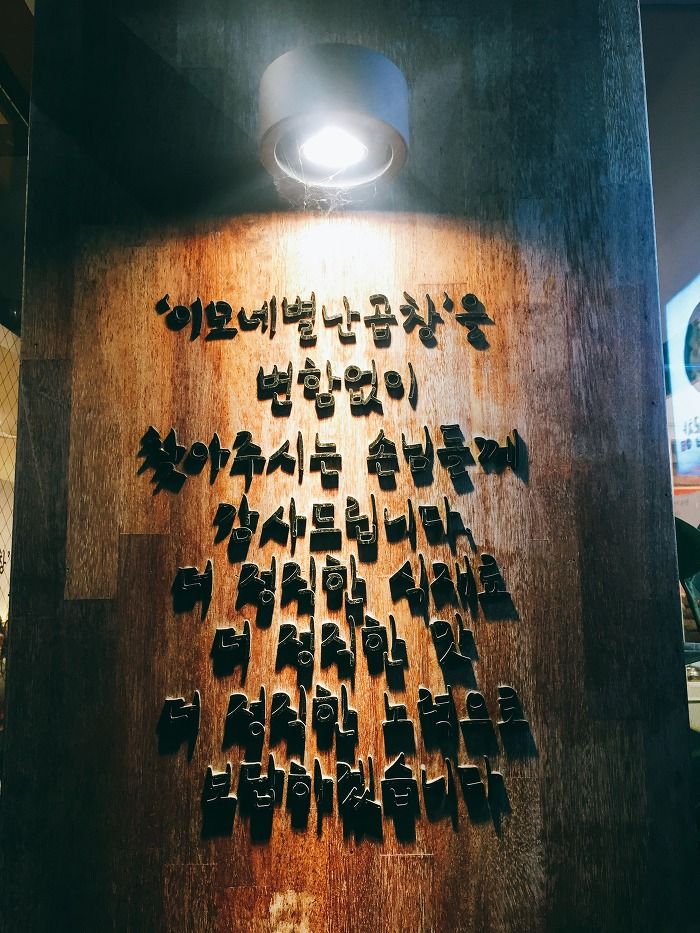 '이모네별난곱창'을
변함없이
찾아주시는 손님들께
감사드립니다.
더 정직한 식재료
더 정직한 맛
더 정직한 노력으로
보답하겠습니다